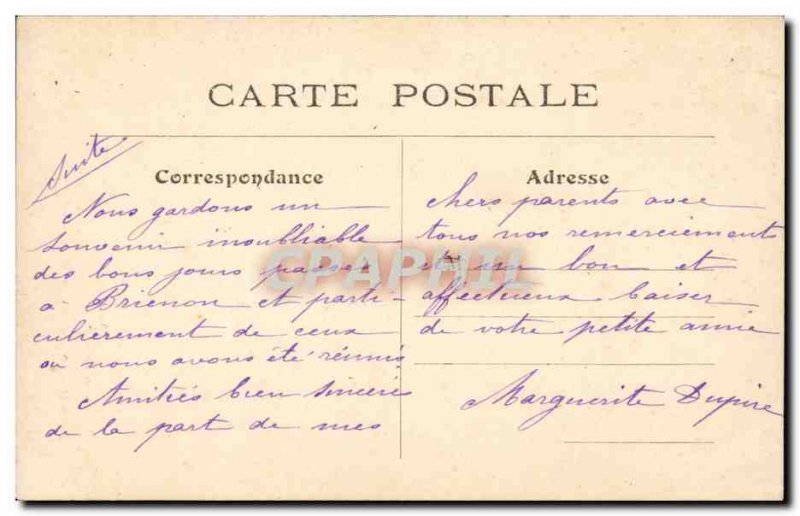 CARTE POSTALE
Suite
Correspondance
Nous gardons un
souvenir inoubliable
des bons jours passés
a Brienon et parti-
culièrement de ceux
ou nous avons été réunis
Amitiés bien sincères
de la part de mes
Adresse
chers parents avec
tous nos remerciements
et un bon et
affectueux baiser
de votre petite amie
Marguerite Dupire
CPAPHIL